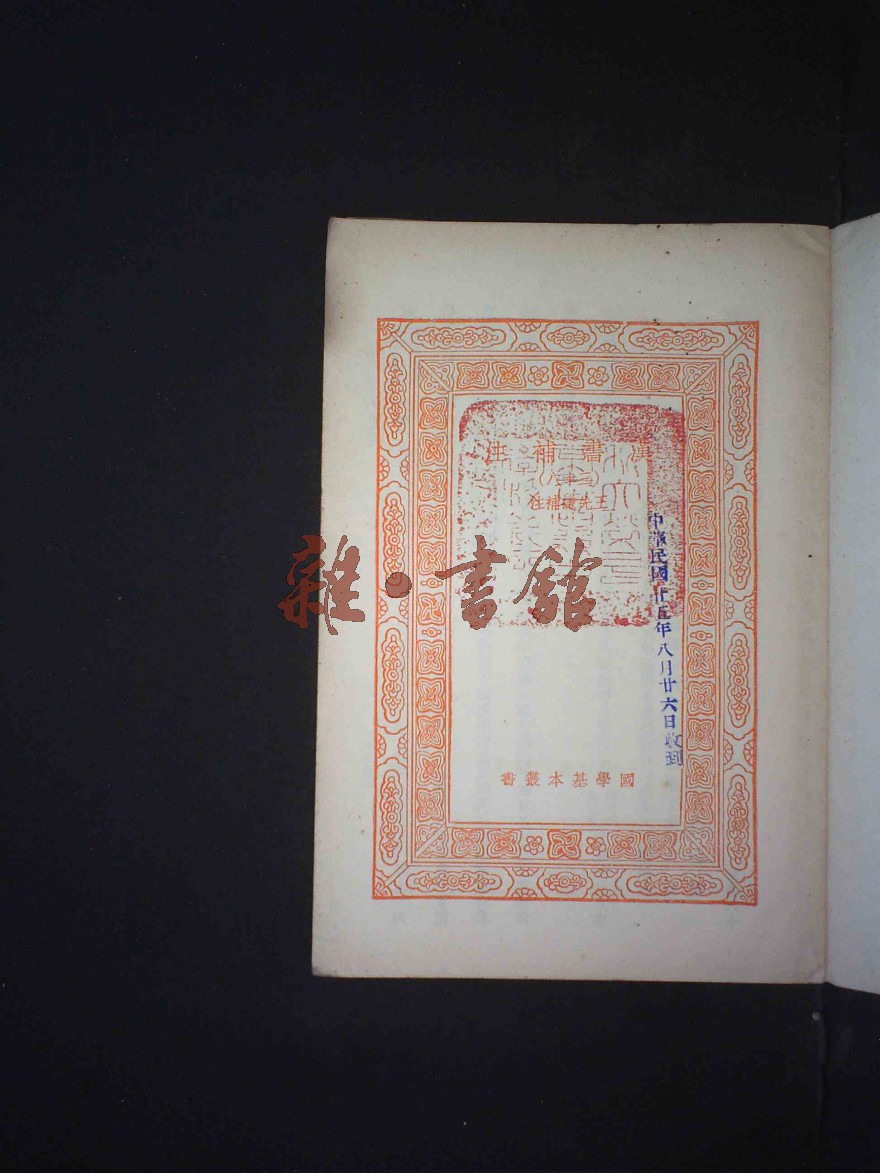 漢書補注
(八)
王先謙補注
中華民國廿五年八月廿六日收到
國學基本叢書
雜·書館